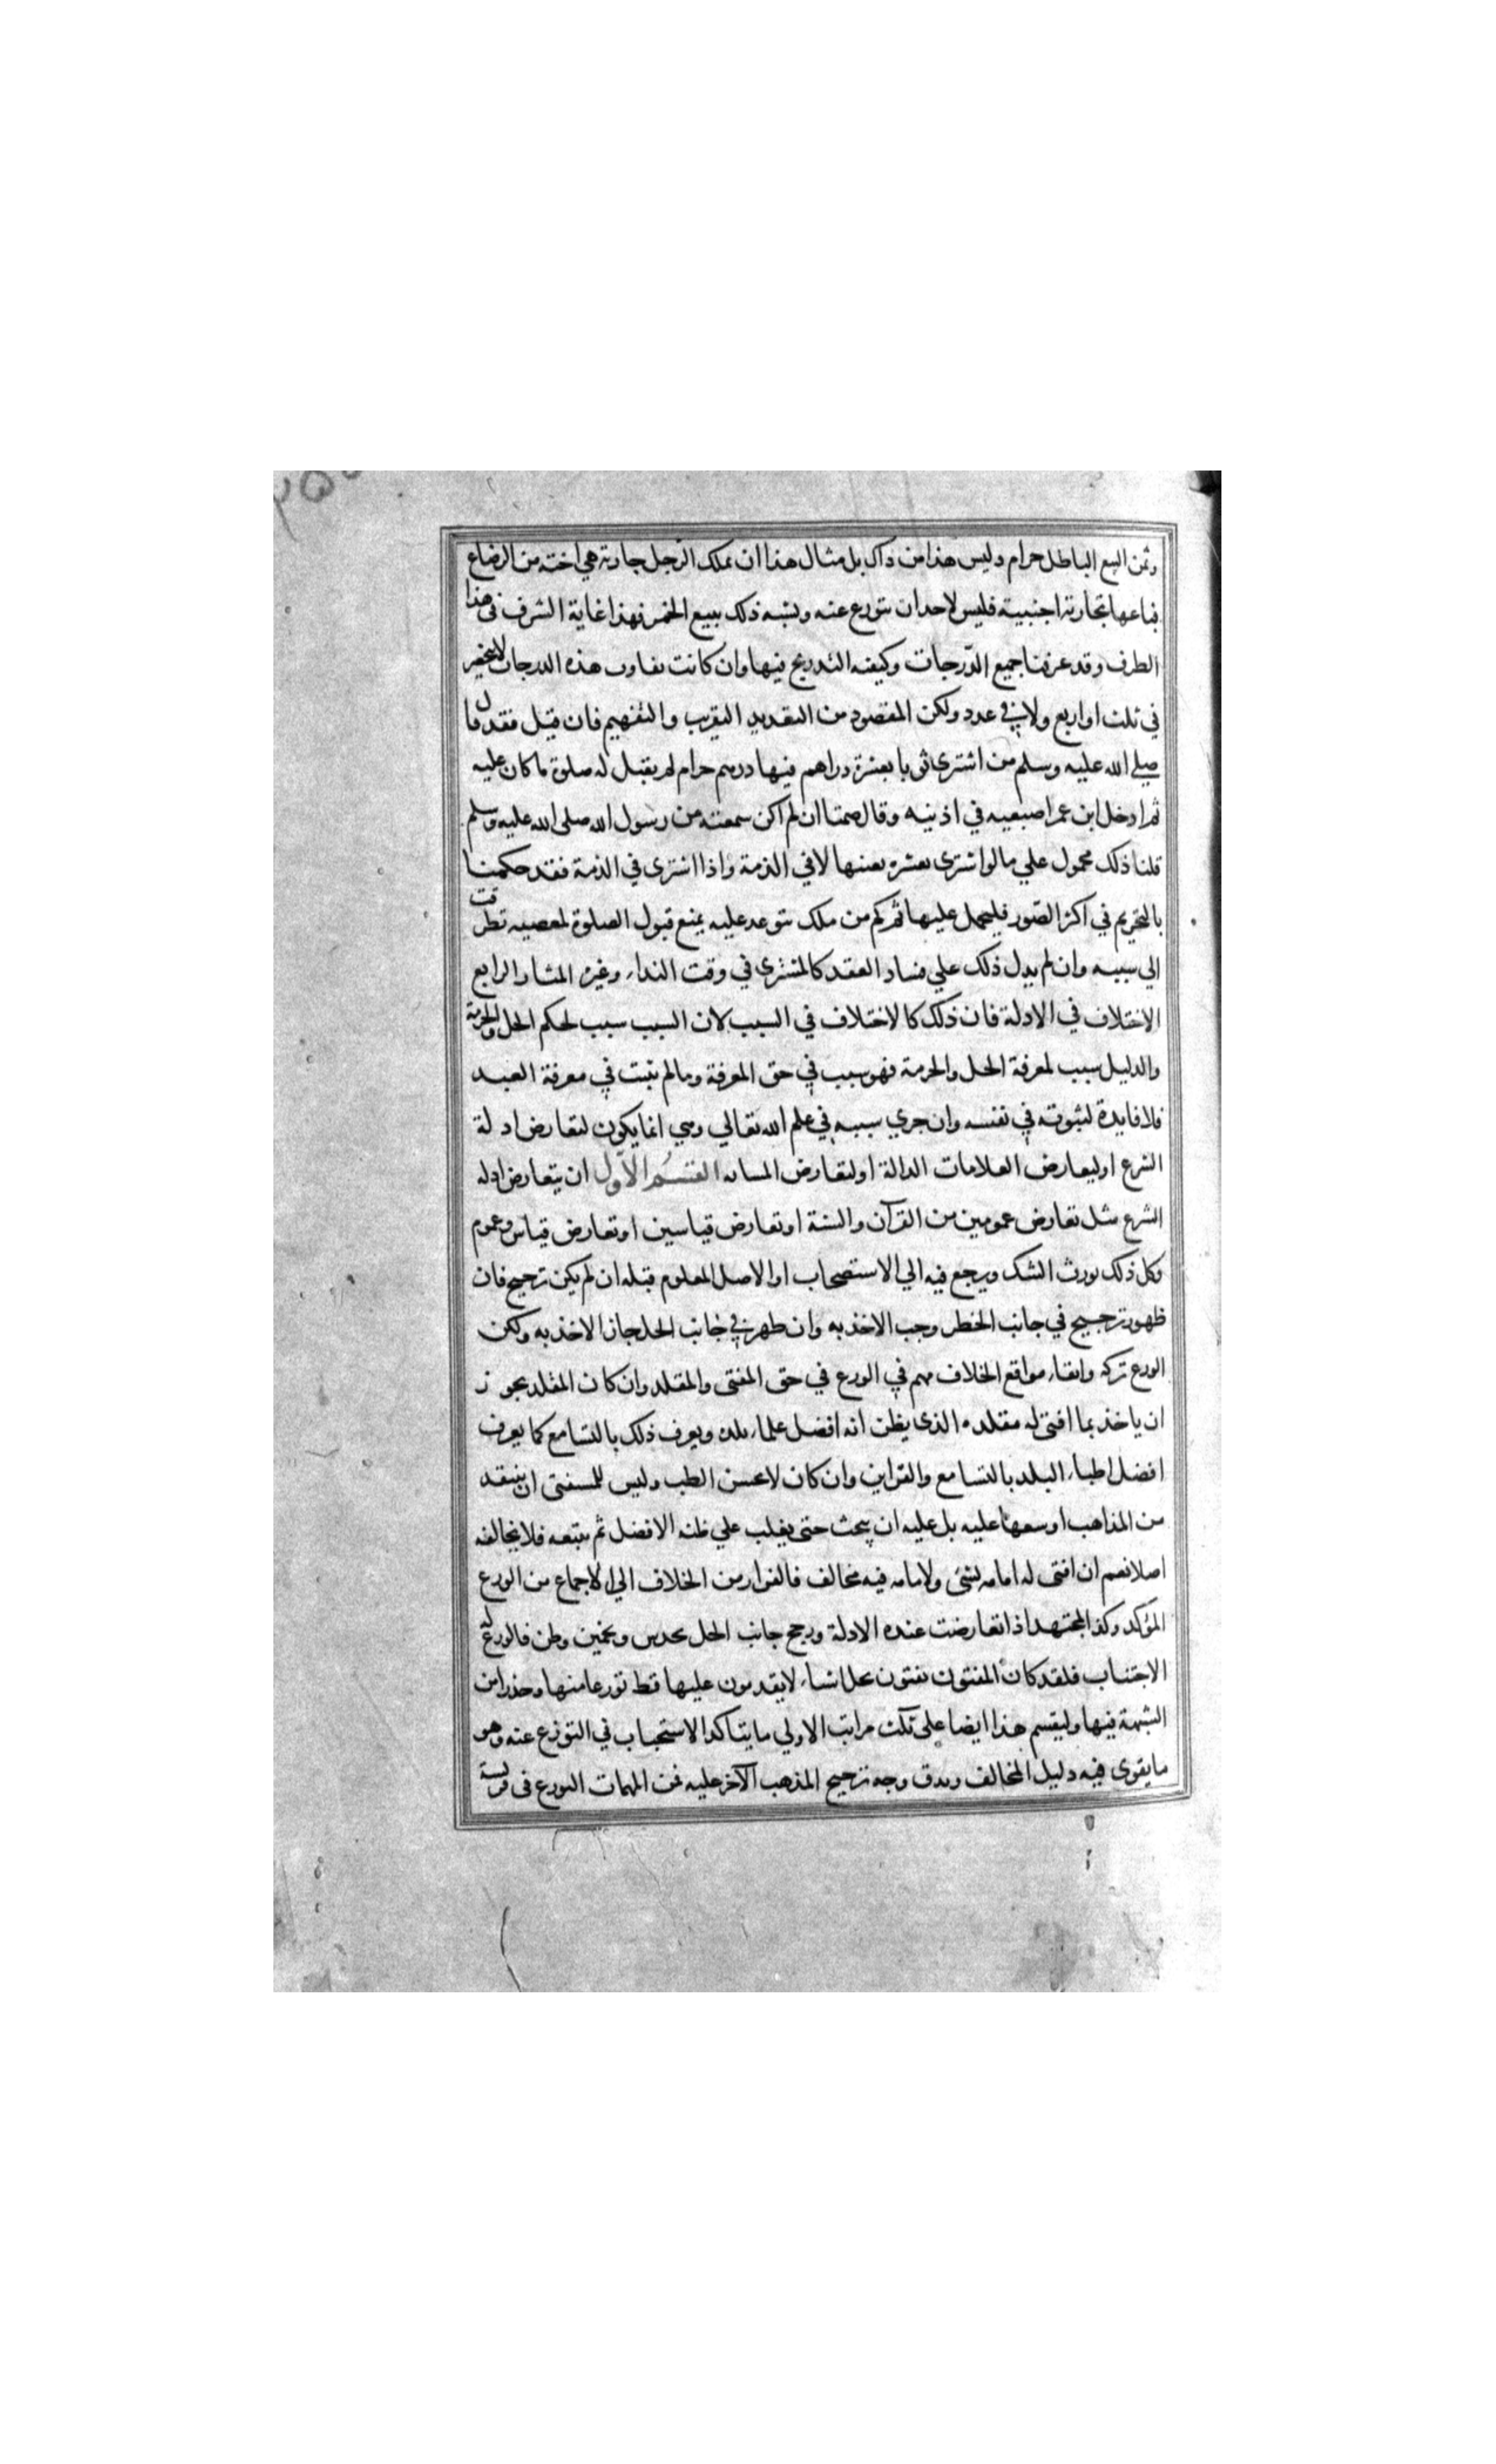 وثمن البيع الباطل حرام وليس هذا من ذاك بل مثال هذا ان يملك الرجل جارية هي اخته من الرضاع
فباعها بجارية اجنبية فليس لاحد ان يتورع عنه وتشبه ذلك ببيع الخمر فهذا غاية الشرف في هذا
الطرف وقد عرفنا جميع الدّرجات وكيفية التدريج فيها وان كانت تفاوت هذه الدرجات لا ينحصر
في ثلث او اربع ولا في عدد ولكن المقصود من التقديد التقريب والتفهيم فان قيل فقد قال
صلي الله عليه وسلم من اشترى ثوبا بعشرة دراهم فيها درهم حرام لم يقبل له صلوة ما كان عليه
ثم ادخل ابن عمر اصبعيه في اذنيه وقال صمتا ان لم اكن سمعته من رسول الله صلى الله عليه وسلم
قلنا ذلك محمول علي ما لو اشترى بعشرة بعينها لا في الذمة واذا اشترى في الذمة فقد حكمنا
بالتحريم في اكثر الصّور فليحمل عليها ثم كم من ملك يتوعد عليه بمنع قبول الصلوة لمعصية تطرقت
الي سببه وان لم يدل ذلك علي فساد العقد كالمشترى في وقت النداء وغيره المثار الرابع
الاختلاف في الادلة فان ذلك كالاختلاف في السبب لان السبب سبب لحكم الحل والحرمة
والدليل سبب لمعرفة الحل والحرمة فهو سبب في حق المعرفة وما لم يثبت في معرفة العبد
فلا فايدة لثبوته في نفسه وان جري سببه في علم الله تعالي وهي انما يكون لتعارض ادلة
الشرع او ليعارض العلامات الدالة او لتعارض المسابه القسم الاوّل ان يتعارض ادله
الشرع مثل تعارض عمومين من القرآن والسنة او تعارض قياسين او تعارض قياس وعموم
وكل ذلك يورث الشك ويرجع فيه الي الاستصحاب او الاصل المعلوم قبله ان لم يكن ترجيح فان
ظهور ترجيح في جانب الحظر وجب الاخذ به وان ظهر في جانب الحل جاز الاخذ به ولكن
الورع تركه واتقاء مواقع الخلاف مهم في الورع في حق المفتى والمقلد وان كان المقلد يجوز
ان ياخذ بما افتى له مقلده الذي يظن انه افضل علماء بلده ويعرف ذلك بالتسامع كما يعرف
افضل اطباء البلد بالتسامع والقراين وان كان لا يحسن الطب وليس للمستفتى ان ينتقد
من المذاهب اوسعها عليه بل عليه ان يبحث حتى يغلب علي ظنه الافضل ثم يتبعه فلا يخالفه
اصلا نعم ان افتى له امامه بشئ ولامامه فيه مخالف فالفرار من الخلاف الي الاجماع من الورع
المؤكد وكذا المجتهد اذا تعارضت عنده الادلة ورجح جانب الحل بحدس وتخمين وظن فالورع له
الاجتناب فلقد كان المفتون يفتون بحل اشياء لا يقدمون عليها قط تورعا منها وحذرا من
الشبهة فيها وليقسم هذا ايضا على ثلث مراتب الاولي ما يتاكد الاستحباب في التورّع عنه وهو
ما يقوى فيه دليل المخالف ويدق وجه ترجيح المذهب الآخر عليه فمن المهمات التورع في فريسة